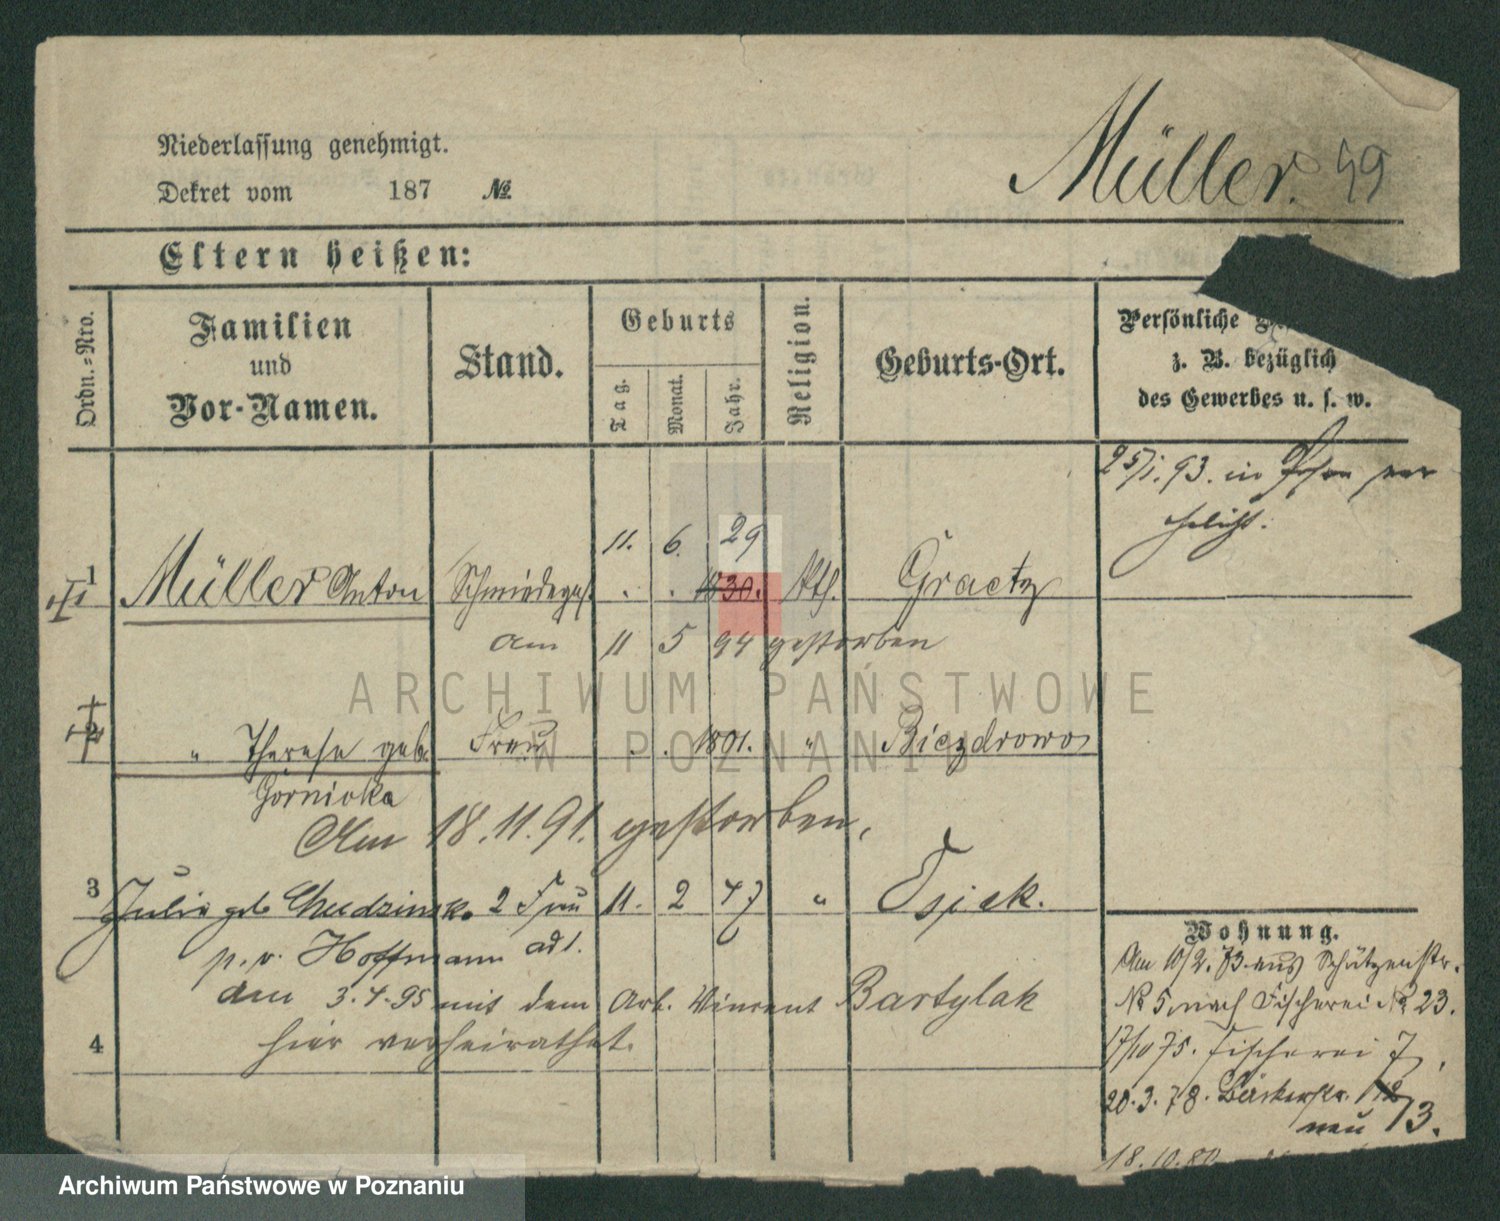 Niederlassung genehmigt.
Müller. 49
Dekret vom 187 №
Eltern heißen:
Ordn.=Nro.
Familien
und
Vor-Namen.
Stand.
Geburts
Tag.
Monat.
Jahr.
Religion.
Geburts-Ort.
Persönliche
z. B. bezüglich
des Gewerbes u. s. w.
25/1. 93. in Posen ver
ehelicht.
11. 6. 29
1 Müller Anton Schmiedeges. . . 1830. Kth. Graetz
am 11 5 94 gestorben
2 " Therese geb. Frau . . 1801. " Biezdrowo
Górnicka
Am 18.11.91. gestorben,
3 Julie geb Chudzinska 2 Frau 11. 2 47 " Osiek.
p. v. Hoffmann ad 1.
am 3.4.95 mit dem Arb. Vincent Bartylak
4 hier verheirathet.
Wohnung.
Am 10/2. 73 aus Schützenstr.
№ 5 nach Fischerei № 23.
17/10 75. Fischerei 7,
20.3.78. Bäckerstr. 12
neu 13.
18.10.80
ARCHIWUM PAŃSTWOWE
W POZNANIU
Archiwum Państwowe w Poznaniu